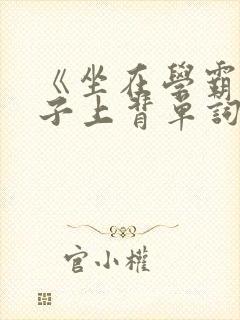 《坐在學霸
子上背單詞
官小權